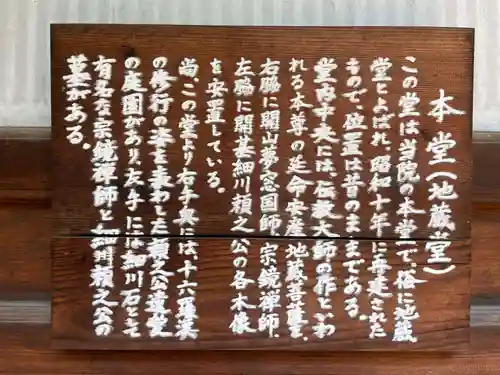 本堂(地蔵堂)
この堂は当院の本堂で、俗に地蔵
堂とよばれ、昭和十年に再建された
もので、位置は昔のままである。
堂内中央には、伝教大師の作といわ
れる本尊の延命安産地蔵菩薩を、
右脇に開山夢窓国師、宗鏡禅師、
左脇に開基細川頼之公の各木像
を安置している。
尚、この堂より右手奥には、十六羅漢
の修行の姿を表わした頼之公遺愛
の庭園があり、左手には細川石とて
有名な宗鏡禅師と細川頼之公の
墓がある。